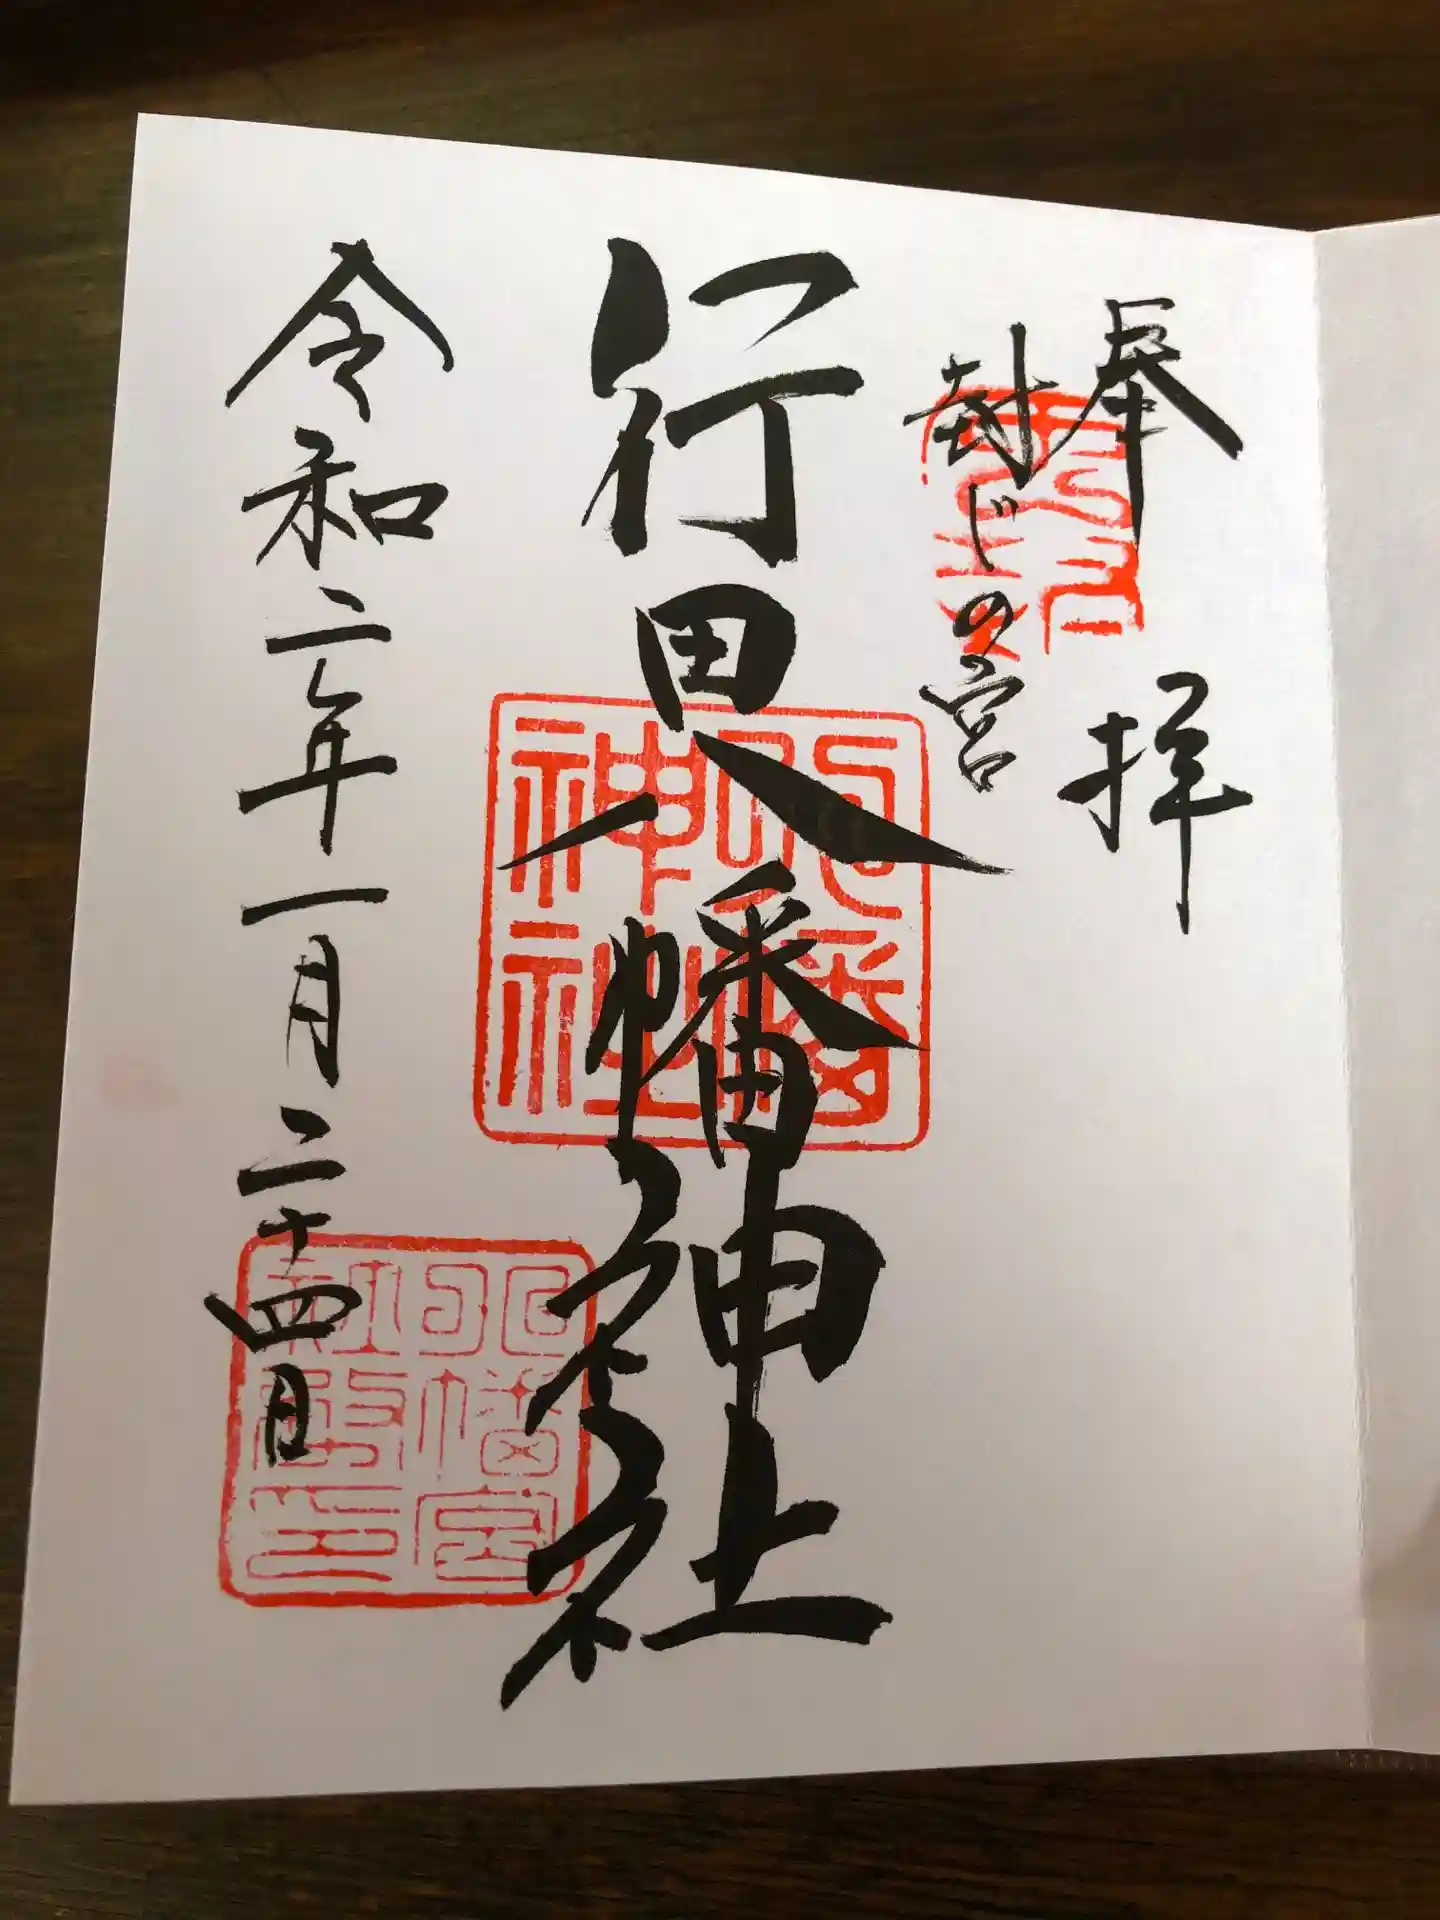 奉拝
封じの宮
行田八幡神社
令和二年一月二十四日
八幡神社
八幡宮社務所印